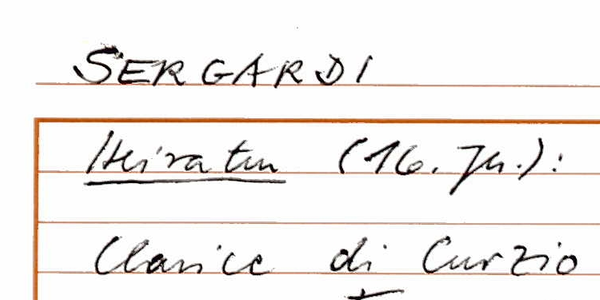 SERGARDI
Heiraten (16. Jh.):
Clarice di Curzio